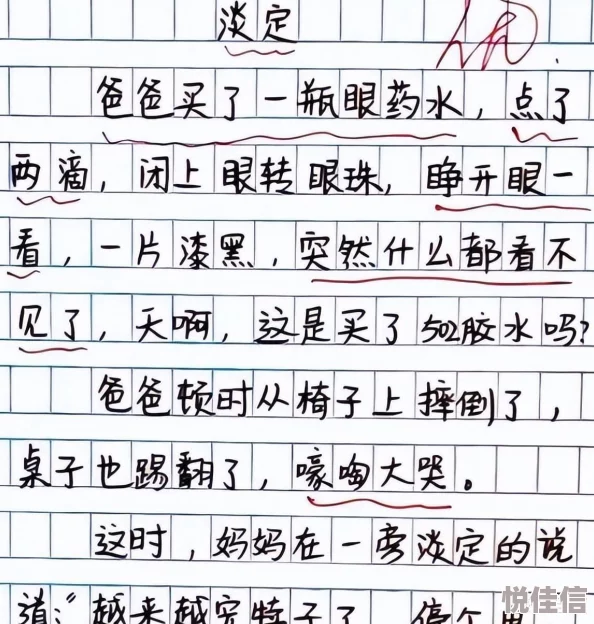 淡定
优
爸爸买了一瓶眼药水，点了
两滴，闭上眼转眼珠，睁开眼一
看，一片漆黑，突然什么都看不
见了，天啊，这是买了502胶水吗?
爸爸顿时从椅子上摔倒了，
桌子也踢翻了，嚎啕大哭。
这时，妈妈在一旁淡定的说
道:“越来越完犊子了，停个电
悦佳信